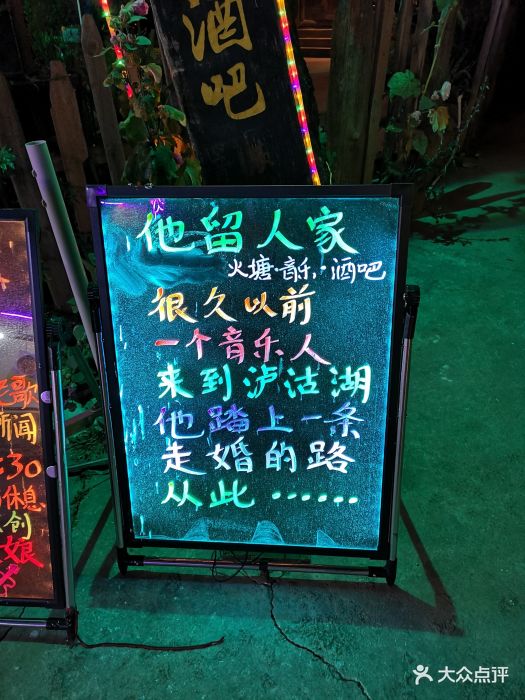 酒吧
他留人家
火塘·音乐·酒吧
很久以前
一个音乐人
来到泸沽湖
他踏上一条
走婚的路
从此……
歌
新闻
:30
休息
创
娘
大众点评